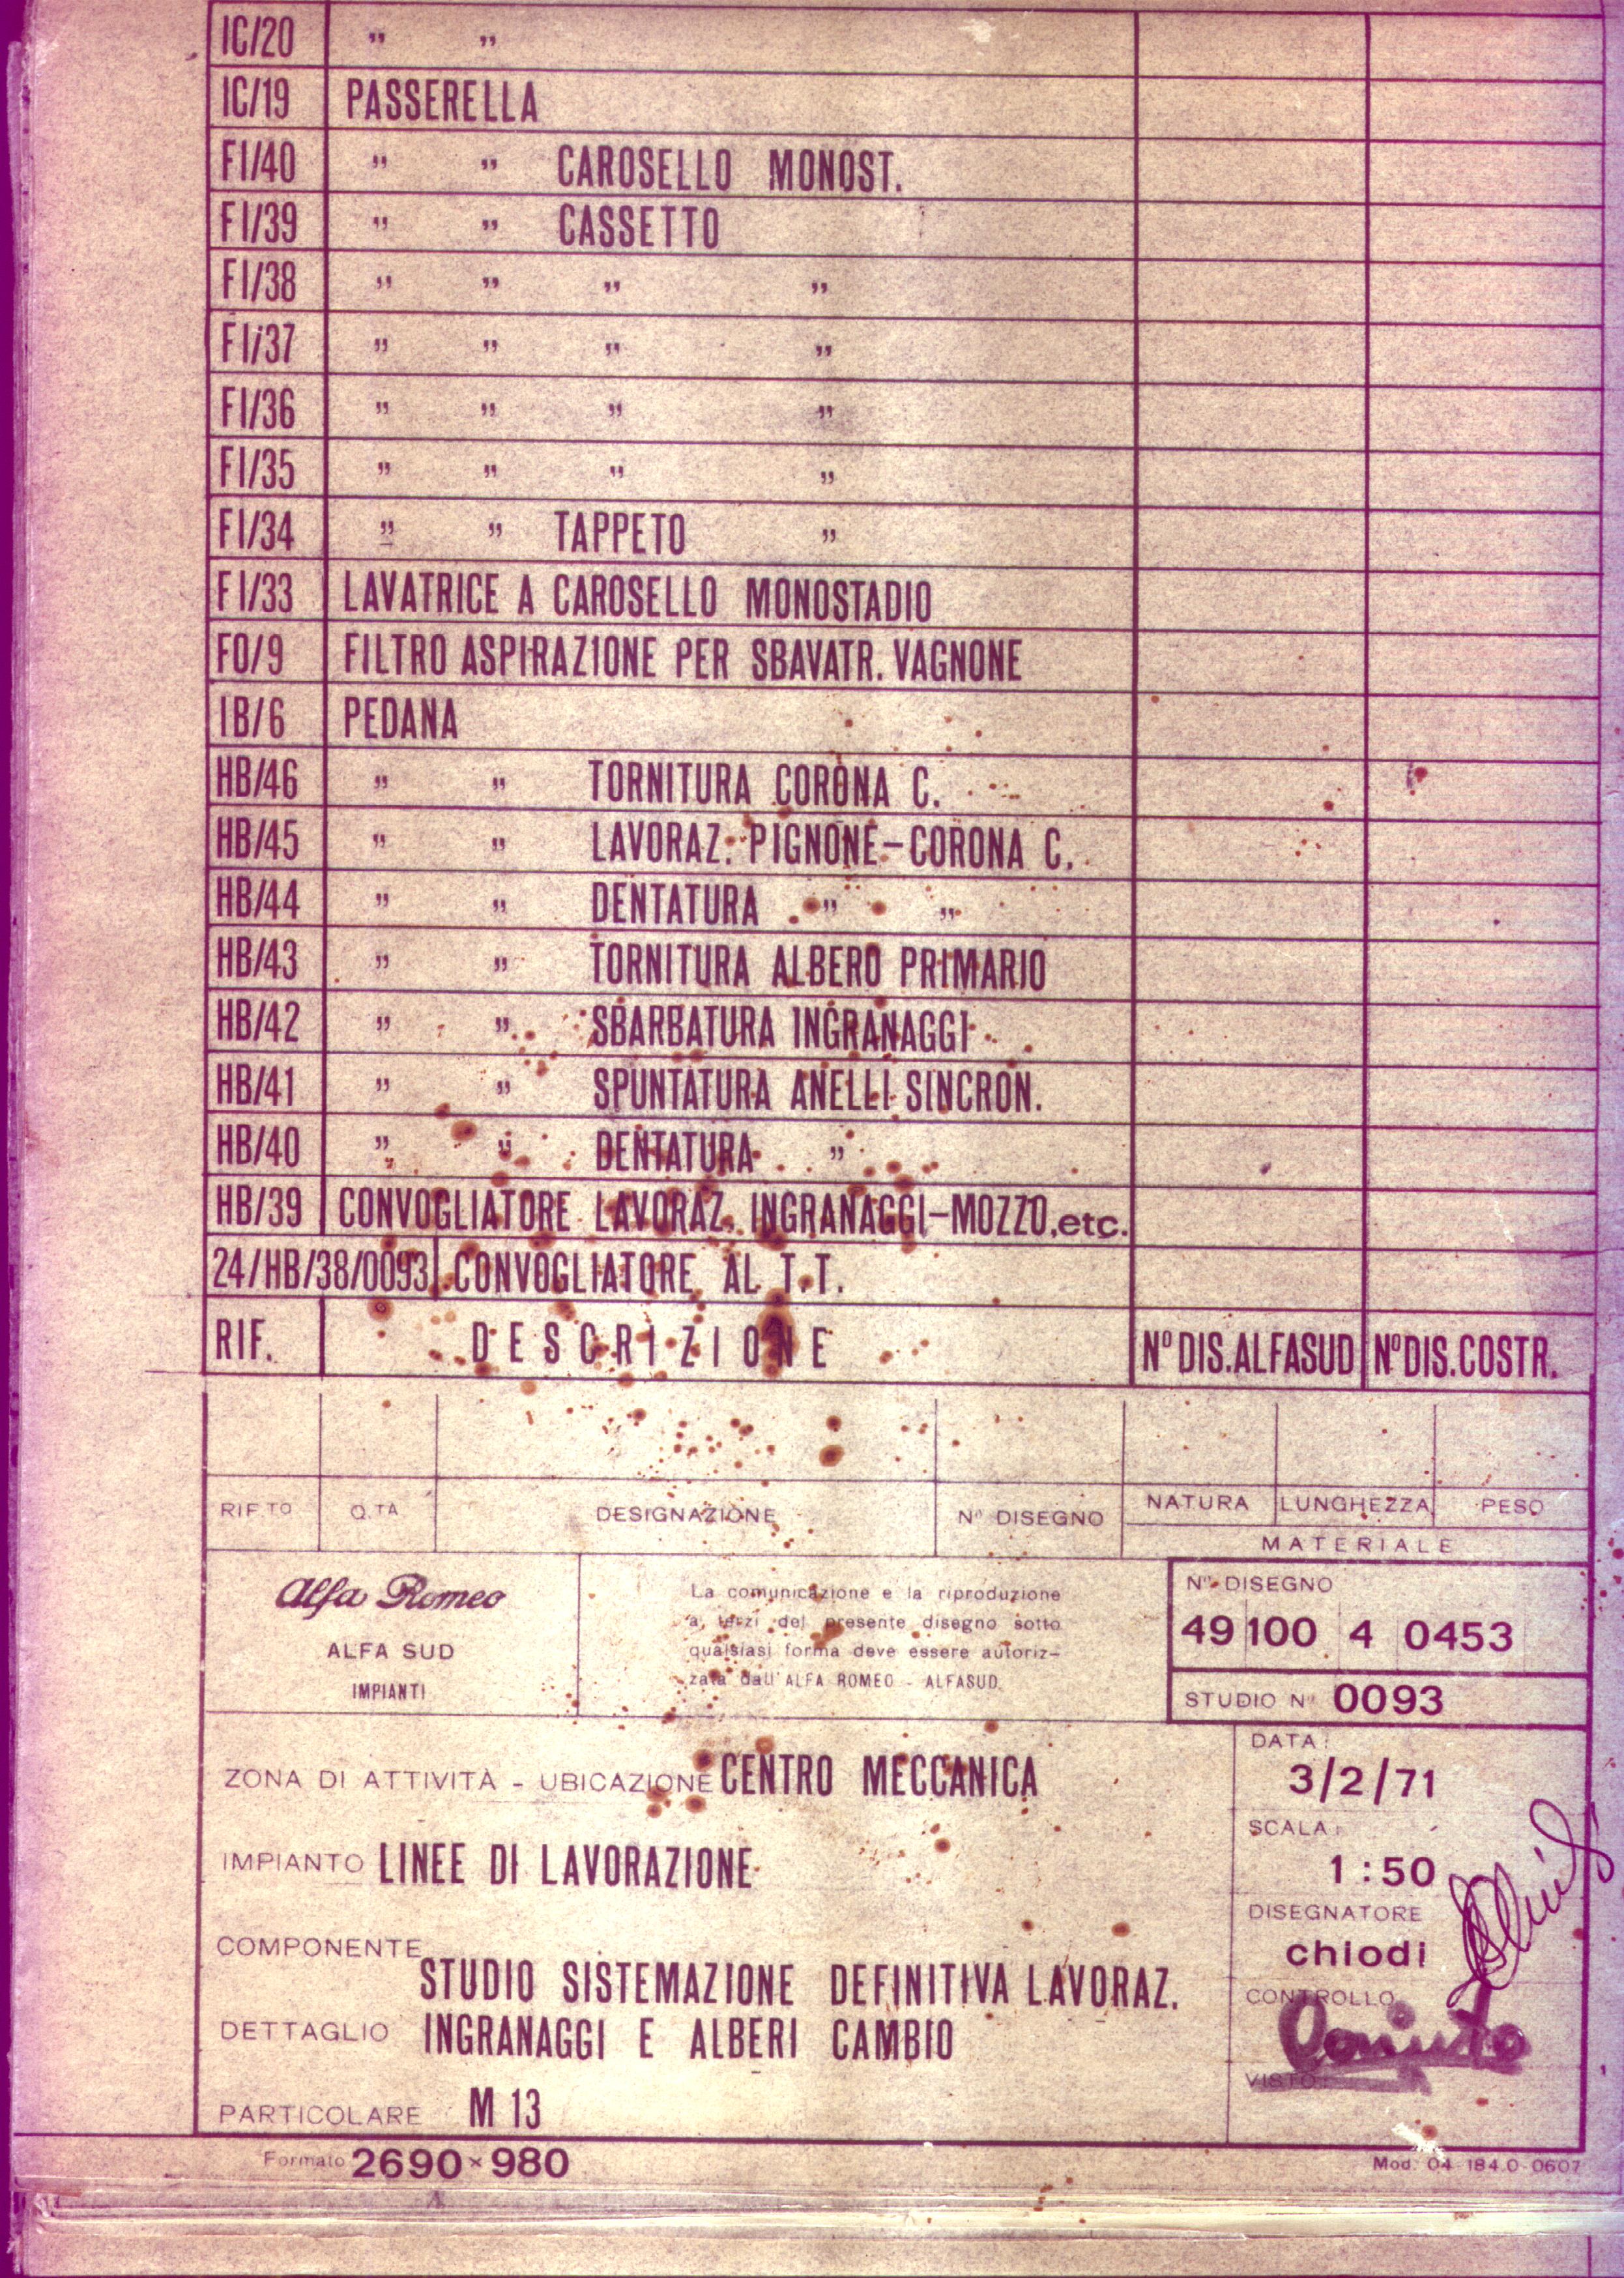 IC/20 " "
IC/19 PASSERELLA
FI/40 " " CAROSELLO MONOST.
FI/39 " " CASSETTO
FI/38 " " " "
FI/37 " " " "
FI/36 " " " "
FI/35 " " " "
FI/34 " " TAPPETO "
FI/33 LAVATRICE A CAROSELLO MONOSTADIO
FO/9 FILTRO ASPIRAZIONE PER SBAVATR. VAGNONE
IB/6 PEDANA
HB/46 " " TORNITURA CORONA C.
HB/45 " " LAVORAZ. PIGNONE-CORONA C.
HB/44 " " DENTATURA " "
HB/43 " " TORNITURA ALBERO PRIMARIO
HB/42 " " SBARBATURA INGRANAGGI
HB/41 " " SPUNTATURA ANELLI SINCRON.
HB/40 " " DENTATURA "
HB/39 CONVOGLIATORE LAVORAZ. INGRANAGGI-MOZZO,etc.
24/HB/38/0093 CONVOGLIATORE AL T.T.
RIF. DESCRIZIONE N° DIS.ALFASUD N° DIS.COSTR.
RIF.TO Q.TA DESIGNAZIONE N° DISEGNO NATURA LUNGHEZZA PESO
MATERIALE
Alfa Romeo
ALFA SUD
IMPIANTI
La comunicazione e la riproduzione
a terzi del presente disegno sotto
qualsiasi forma deve essere autoriz-
zata dall'ALFA ROMEO - ALFASUD.
N° DISEGNO
49 100 4 0453
STUDIO N° 0093
ZONA DI ATTIVITÀ - UBICAZIONE CENTRO MECCANICA
IMPIANTO LINEE DI LAVORAZIONE
COMPONENTE
STUDIO SISTEMAZIONE DEFINITIVA LAVORAZ.
DETTAGLIO INGRANAGGI E ALBERI CAMBIO
PARTICOLARE M 13
DATA:
3/2/71
SCALA:
1:50
DISEGNATORE
chiodi
CONTROLLO
VISTO:
Formato 2690×980
Mod. 04-184.0-0607